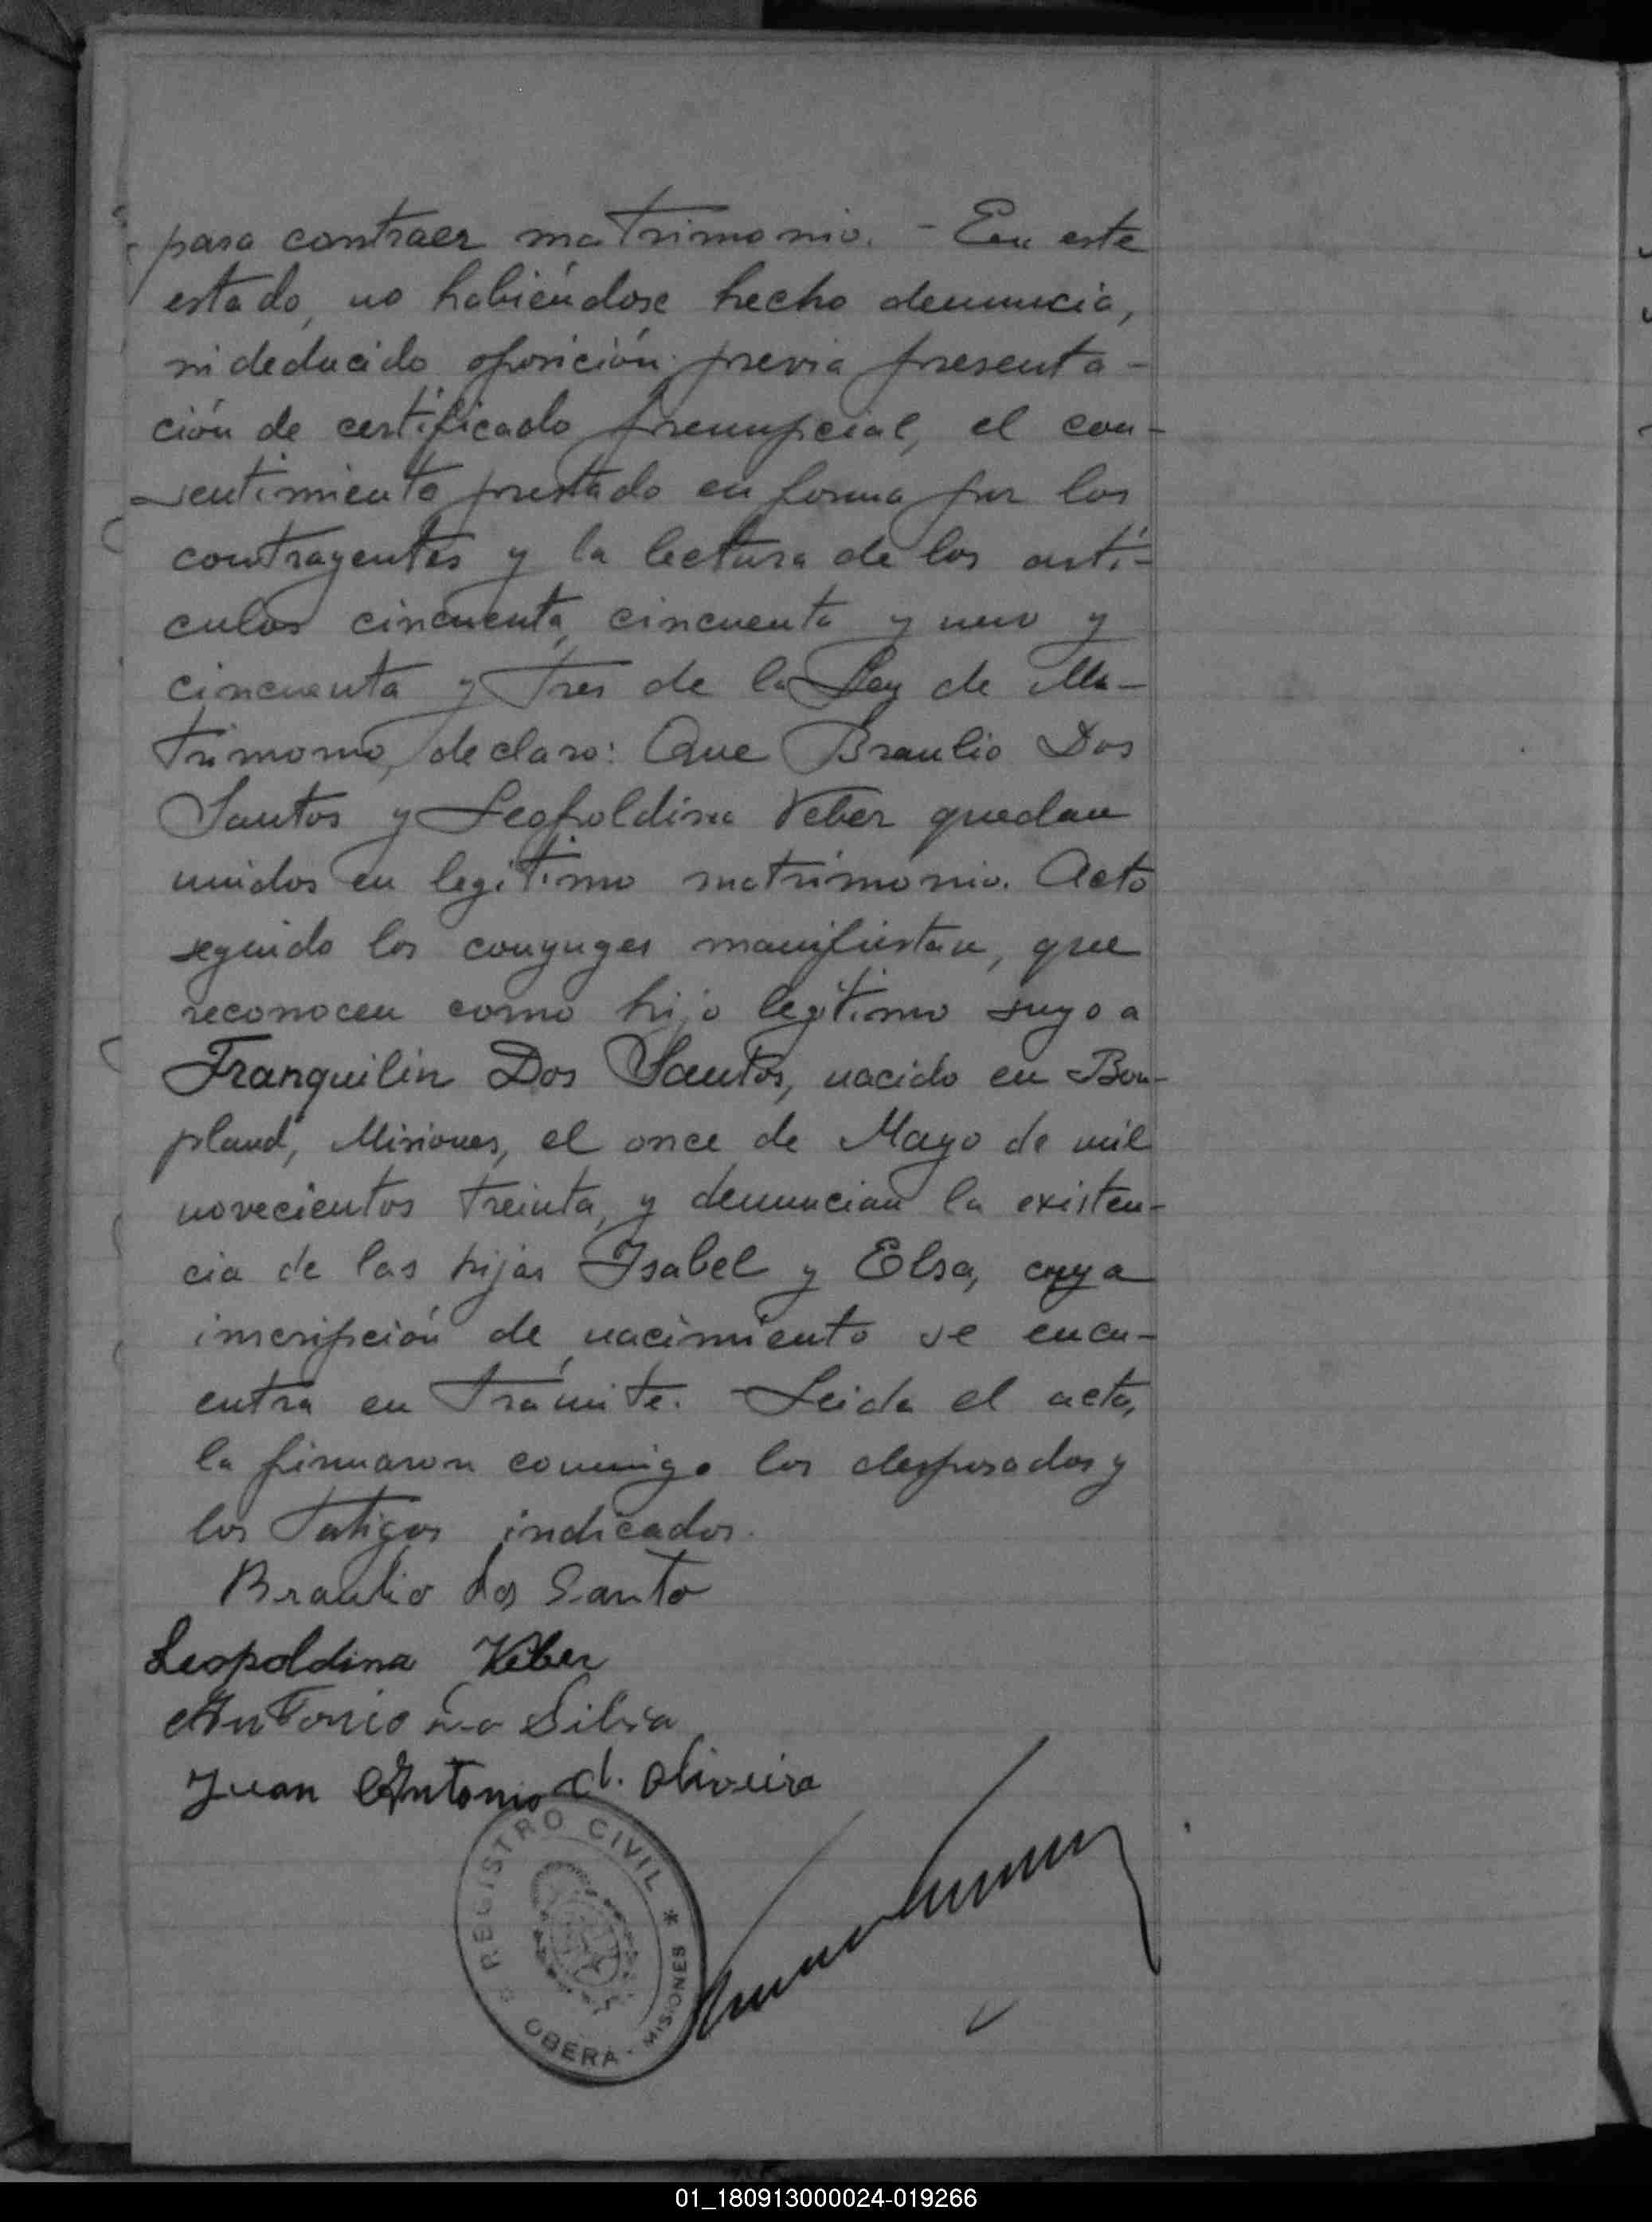 para contraer matrimonio. - En este
estado, no habiéndose hecho denuncia,
ni deducido oposición previa presenta-
ción de certificado prenupcial, el con-
sentimiento prestado en forma por los
contrayentes y la lectura de los artí-
culos cincuenta, cincuenta y uno y
cincuenta y tres de la Ley de Ma-
trimonio, declaro: Que Braulio Dos
Santos y Leopoldina Veber quedan
unidos en legítimo matrimonio. Acto
seguido los conyuges manifiestan, que
reconocen como hijo legítimo suyo a
Franquilin Dos Santos, nacido en Bon-
pland, Misiones, el once de Mayo de mil
novecientos treinta, y denuncian la existen-
cia de las hijas Isabel y Elsa, cuya
inscripción de nacimiento se encu-
entra en trámite. Leida el acta,
la firmaron conmigo los desposados y
los testigos indicados.
Braulio dos Santo
Leopoldina Veber
Antonio da Silva
Juan Antonio d. Oliveira
REGISTRO CIVIL *
OBERA - MISIONES
01_180913000024-019266